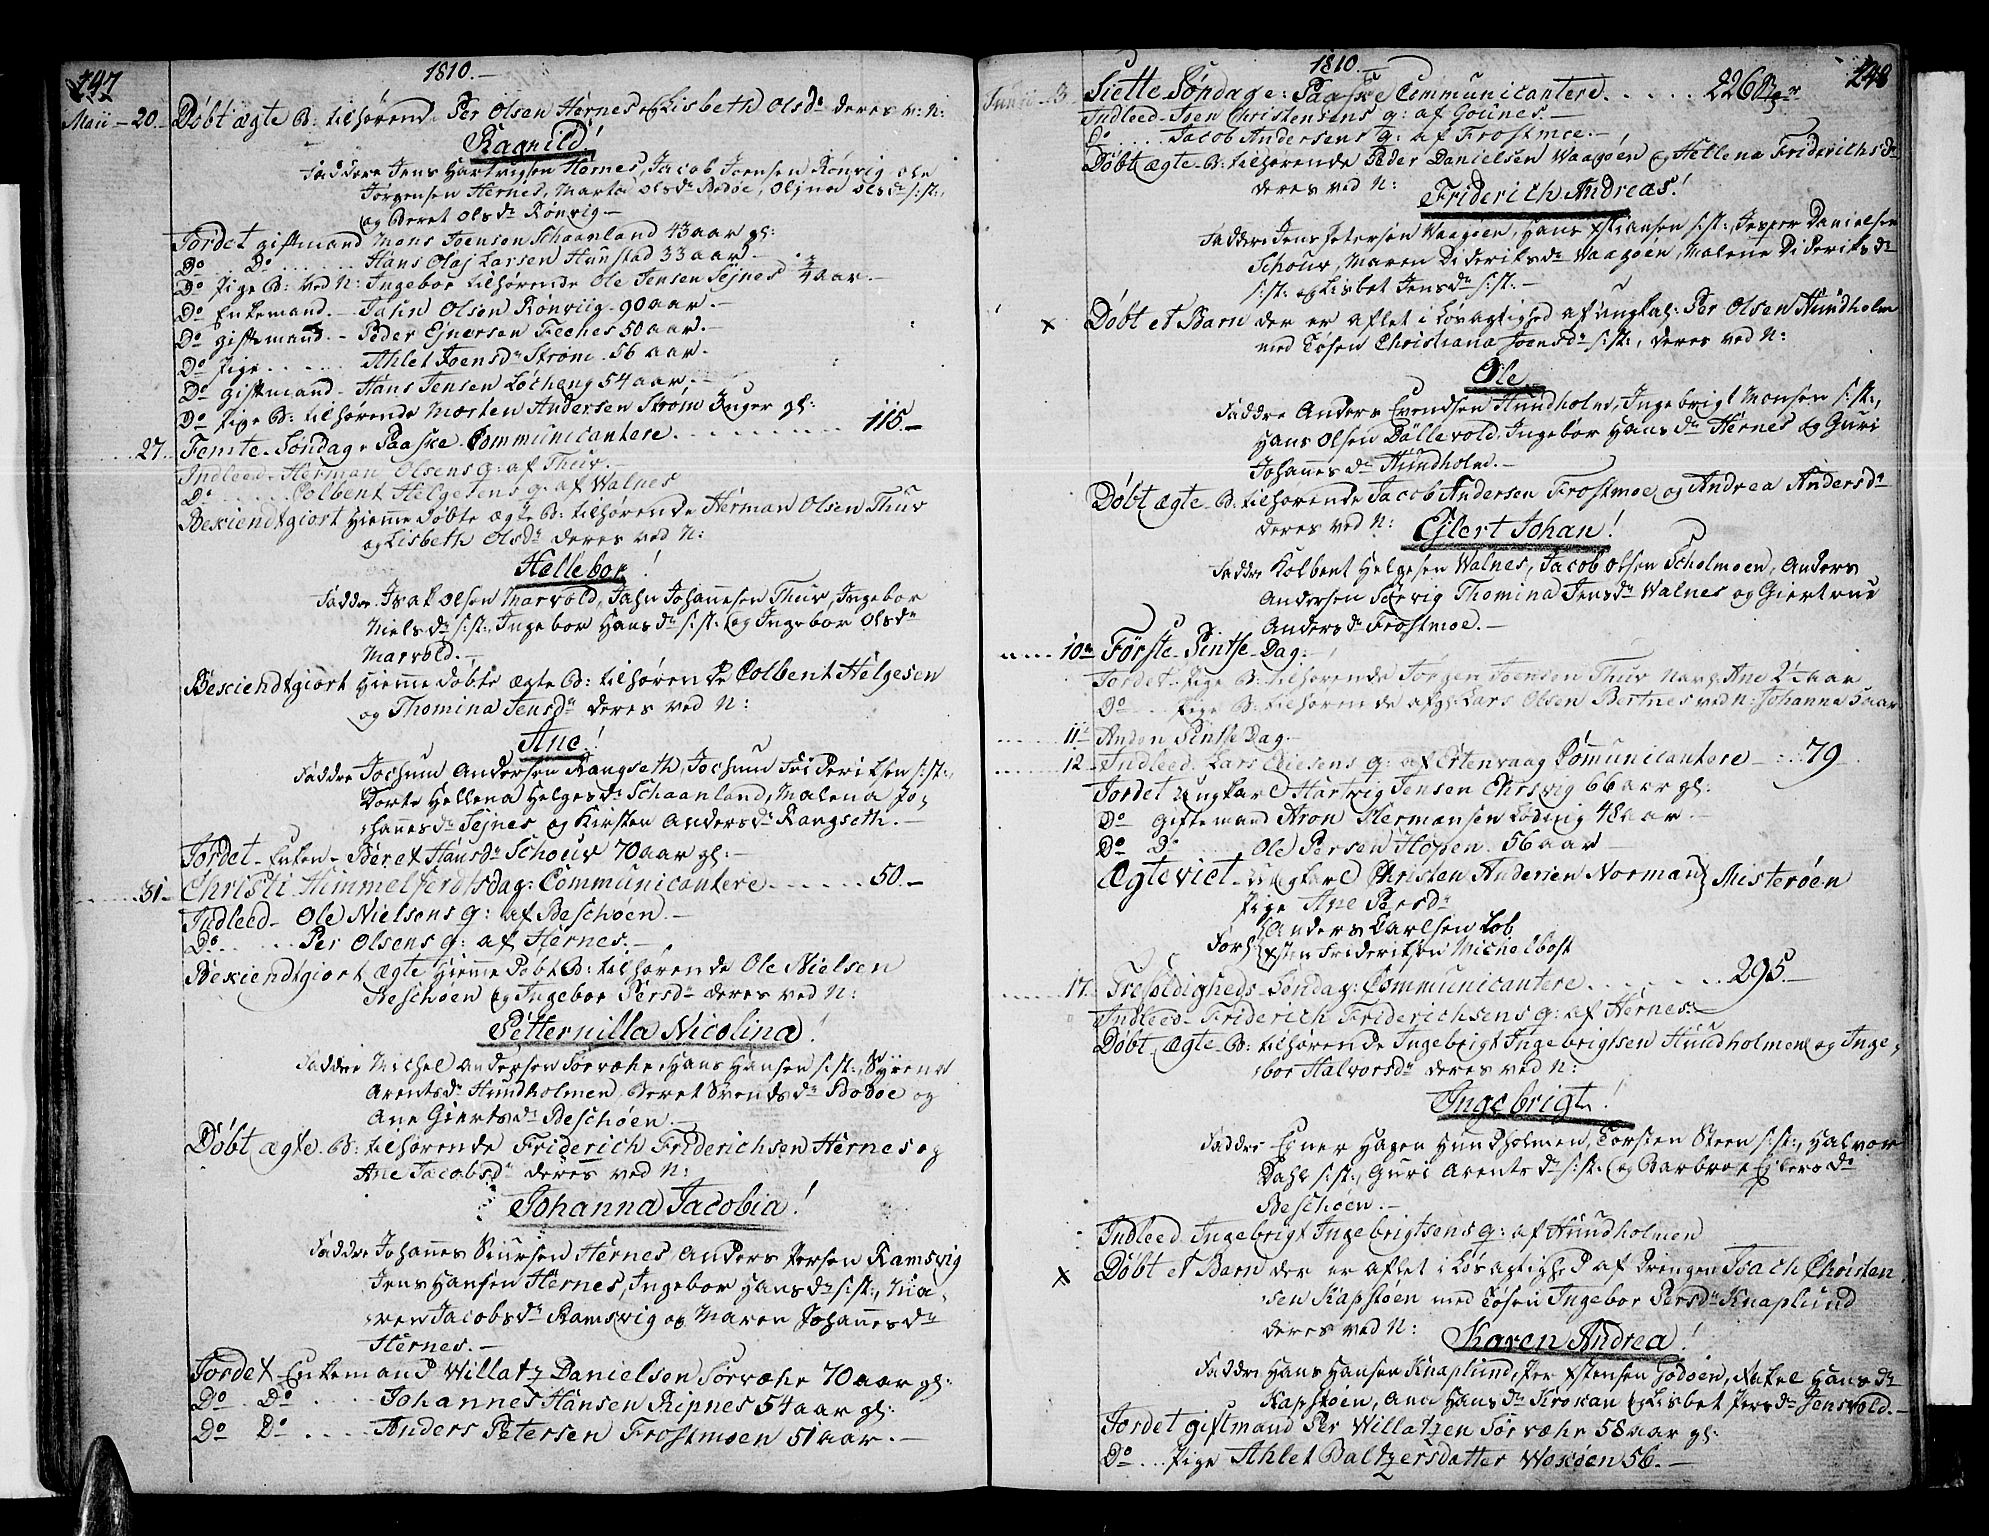 247
1810.—
Maii — 20. Døbt ægte B: tilhørende Per Olsen Hernes og Lisbeth Olsdr deres v: N:
Ragnild!
Faddere Jens Hartvigsen Hernes, Jacob Joensen Rønvig Ole
Jørgensen Hernes, Marta Olsdr Bodøe, Olina Olsdr s:st:,
og Beret Olsdr Rønvig.—
Jordet giftmand Mons Joensen Schaanland 43 aar gl:
Do Do Hans Olaj Larsen Hunstad 33 aar.—
Do Pige B: ved N: Ingebor tilhørende Ole Jensen Sejnes aar.—
Do Enkemand.— Jahn Olsen Rønviig 90 aar.—
Do giftmand.— Peder Ejnersen Feches 50 aar.—
Do Pige Ahlet Joensdr Strøm 56 aar.
Do giftmand — Hans Jensen Løcheng 54 aar.—
Do Pige B: tilhørende Morten Andersen Strøm Inger gl:
27. Femte Søndag e Paaske Communicantere 115.—
Indleed Herman Olsens q: af Thuv.—
Do Colbent Helgesens q: af Walnes
Bekiendtgiort hiemme døbte ægte B: tilhørende Herman Olsen Thuv
og Lisbeth Olsdr deres ved N:
Hellebor!
Faddre Isak Olsen Marvold, Jahn Johannesen Thuv, Ingebor
Nielsdr s:st:, Ingebor Hansdr s:st: og Ingebor Olsdr
Marvold.—
Bekiendtgiort hiemme døbte ægte B: tilhørende Colbent Helgesen
og Thomina Jensdr deres ved N:
Ane!
Faddre Jochum Andersen Rangseth, Jochum Frideriksen s:st:,
Dorte Hellena Helgesdr Schaanland, Malena Jo-
hannesdr Sejnes og Kirsten Andersdr Rangseth.—
Jordet Enken Beret Hansdr Schouv 70 aar gl:—
31. Christi Himmelferdtsdag: Communicantere 50.—
Indleed — Ole Nielsens q: af Beschøen.—
Do Per Olsens q: af Hernes.—
Bekiendtgiort ægte hiemme døbt B: tilhørende Ole Nielsen
Beschøen og Ingebor Persdr deres ved N:
Petternilla Nicolina!
Faddre Michel Andersen Forvæhr, Hans Hansen s:st:, Syrena
Arentsdr Hundholmen, Beret Svendsdr Bodøe og
Ane Giertsdr Beschøen.—
Døbt ægte B: tilhørende Friderich Friderichsen Hernes og
Ane Jacobsdr deres ved N:
Johanna Jacobia!
Faddre Johannes Siursen Hernes, Anders Persen Ramsvig
Jens Hansen Hernes, Ingebor Hansdr s:st:, Ma-
ren Jacobsdr Ramsvig og Maren Johannesdr
Hernes.—
Jordet Enkemand Willatz Danielsen Forvæhr 70 aar gl:
Do Do Johannes Hansen Ripnes 54 aar gl:
Do Do Anders Petersen Frostmoen 51 aar.—
1810.
248
Junii 3 Siette Søndag e: Paaske Communicantere 226
Indleed Joen Christensens q: af Gounes.—
Do Jacob Andersens q: af Frostmoe.—
Døbt ægte B: tilhørende Peder Danielsen Waagøen og Hellena Friderichsdr
deres ved N:
Friderich Andreas!
Faddre Jens Petersen Waagøen, Hans Hansen s:st:, Jesper Danielsen
Schouv, Maren Dideriksdr Waagøen, Malene Dideriksdr
s:st: og Lisbet Jensdr s:st:—
x Døbt et Barn der er aflet i Løsagtighed af ungkal: Per Olsen Hundholm
med Tøsen Christiana Joensdr s:st:, deres ved N:
Ole
Faddre Anders Evendsen Hundholm, Ingebrigt Monsen s:st:,
Hans Olsen Dällevold, Ingebor Hansdr Hernes og Guri
Johannesdr Hundholm.—
Døbt ægte B: tilhørende Jacob Andersen Frostmoe og Andrea Andersdr
deres ved N:
Ejlert Johan!
Faddre Kolbent Helgesen Walnes, Jacob Olsen Scholmoen, Anders
Andersen Thomina Jensdr Walnes og Giertrue
Andersdr Frostmoe.—
10de Første Pintse Dag:—
Jordet Pige B: tilhørende Jørgen Joensen Thuv Nav: Ane aar
Do Pige B: tilhørende afgl: Lars Olsen Bertnes ved N: Johanna 5 aar
11te Anden Pintse Dag
12 Indleed Lars q: af Ertenvaag Communicantere 79
Jordet ungkarl Hartvig Jensen 66 aar gl:
Do Giftemand Aron Hermansen Løding 48 aar.—
Do Do Ole Persen Hopen 56 aar—
Ægteviet ungkarl Christen Andersen Norman} Misterøen
Pige Ane Persdr
Forl: Anders Carlsen Lob
Frideriksen Michelbost
17. Trefoldigheds Søndag: Communicantere 295.—
Indleed Friderich Friderichsens q: af Hernes.
Døbt ægte B: tilhørende Ingebrigt Ingebrigtsen Hundholmen og Inge-
bor Halvorsdr deres ved N:
Ingebrigt!
Faddre Ejner Hagen Hundholmen, Torsten Steen s:st:, Halvor
Dahl s:st:, Guri Arentsdr s:st: og Barbroe Ejlersdr
Beschøen.—
Indleed Ingebrigt Ingebrigtsens q: af Hundholmen
x Døbt et Barn der er aflet i Løsagtighed af Drengen Isach Christen
sen Kapstøen med Tøsen Ingebor Persdr Knaplund
deres ved N:
Karen Andrea!
Faddre Hans Hansen Knaplund, Per Godøen, Rakel Hansdr
Kapstøen, Ane Hansdr Krokan og Lisbet Persdr Jensvold.—
Jordet giftmand Per Willatzen Forvæhr 58 aar gl:
Do Pige Ahlet Baltzersdatter Woxøen 56.—